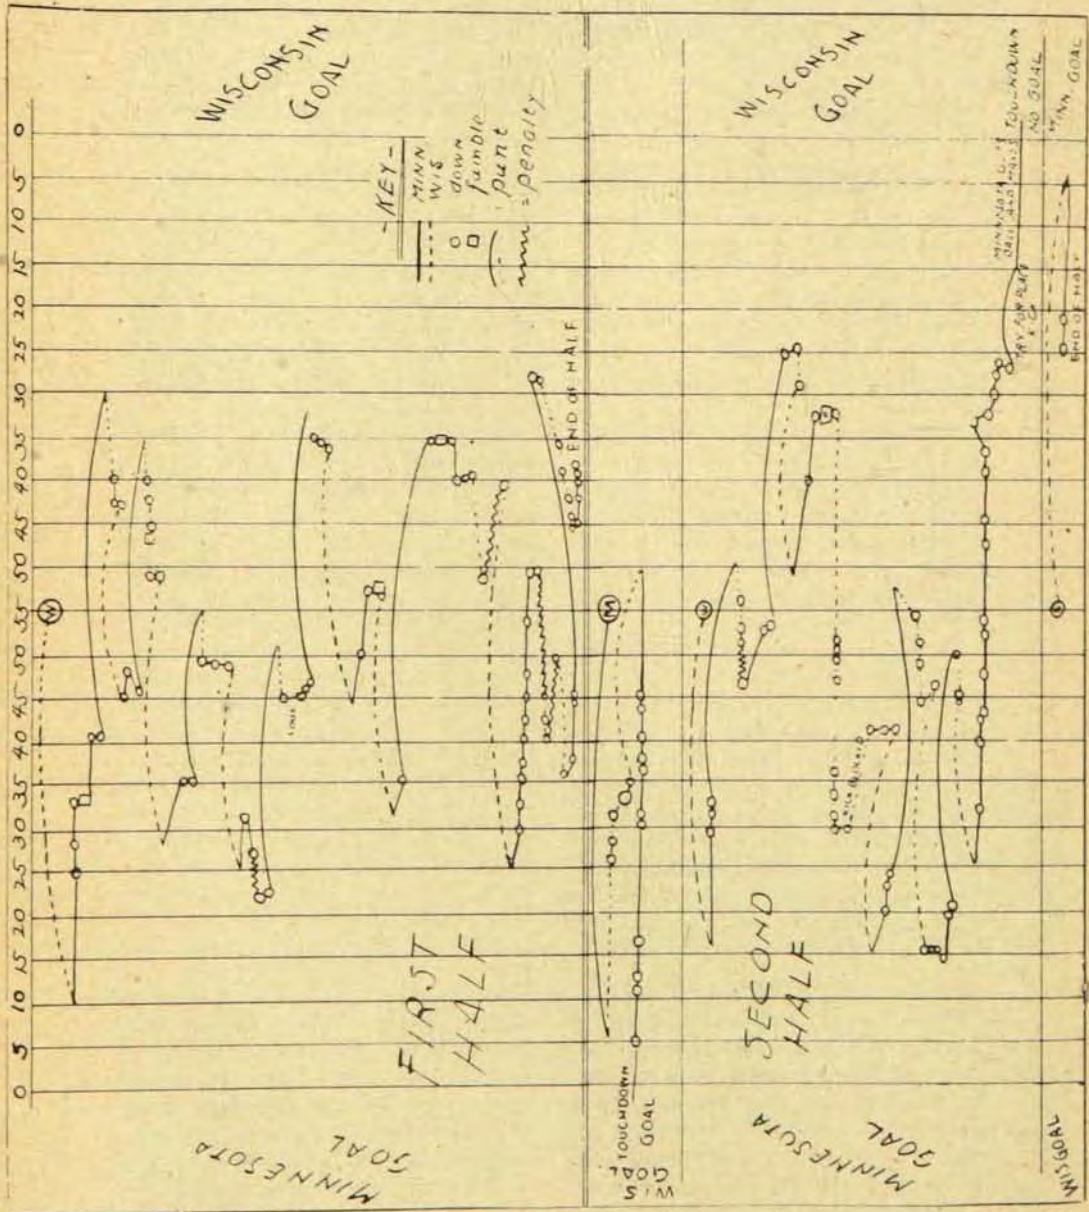 0 5 10 15 20 25 30 35 40 45 50 55 50 45 40 35 30 25 20 15 10 5 0
WISCONSIN
GOAL
- KEY -
MINN
WIS
down
fumble
punt
= penalty
END OF HALF
FIRST
HALF
MINNESOTA
GOAL
W
M
WIS
GOAL
TOUCHDOWN
GOAL
WISCONSIN
GOAL
SECOND
HALF
MINNESOTA
GOAL
TOUCHDOWN
NO GOAL
MINN. GOAL
END OF HALF
WIS GOAL